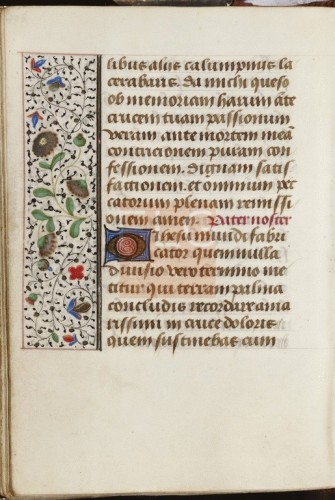 libus aliis calumpniis la
cerabaris. Da michi queso
ob memoriam harum āte
crucem tuam passionum
veram ante mortem meā
contricionem puram con
fessionem. Dignam satis
factionem et omnium pec
catorum plenam remissi
onem amen. Pater noster
O ihesu mundi fabri
cator quem nulla
divisio vero termino me
titur qui terram palma
concludis recordare ama
rissimi in cruce doloris
quem sustinebas cum